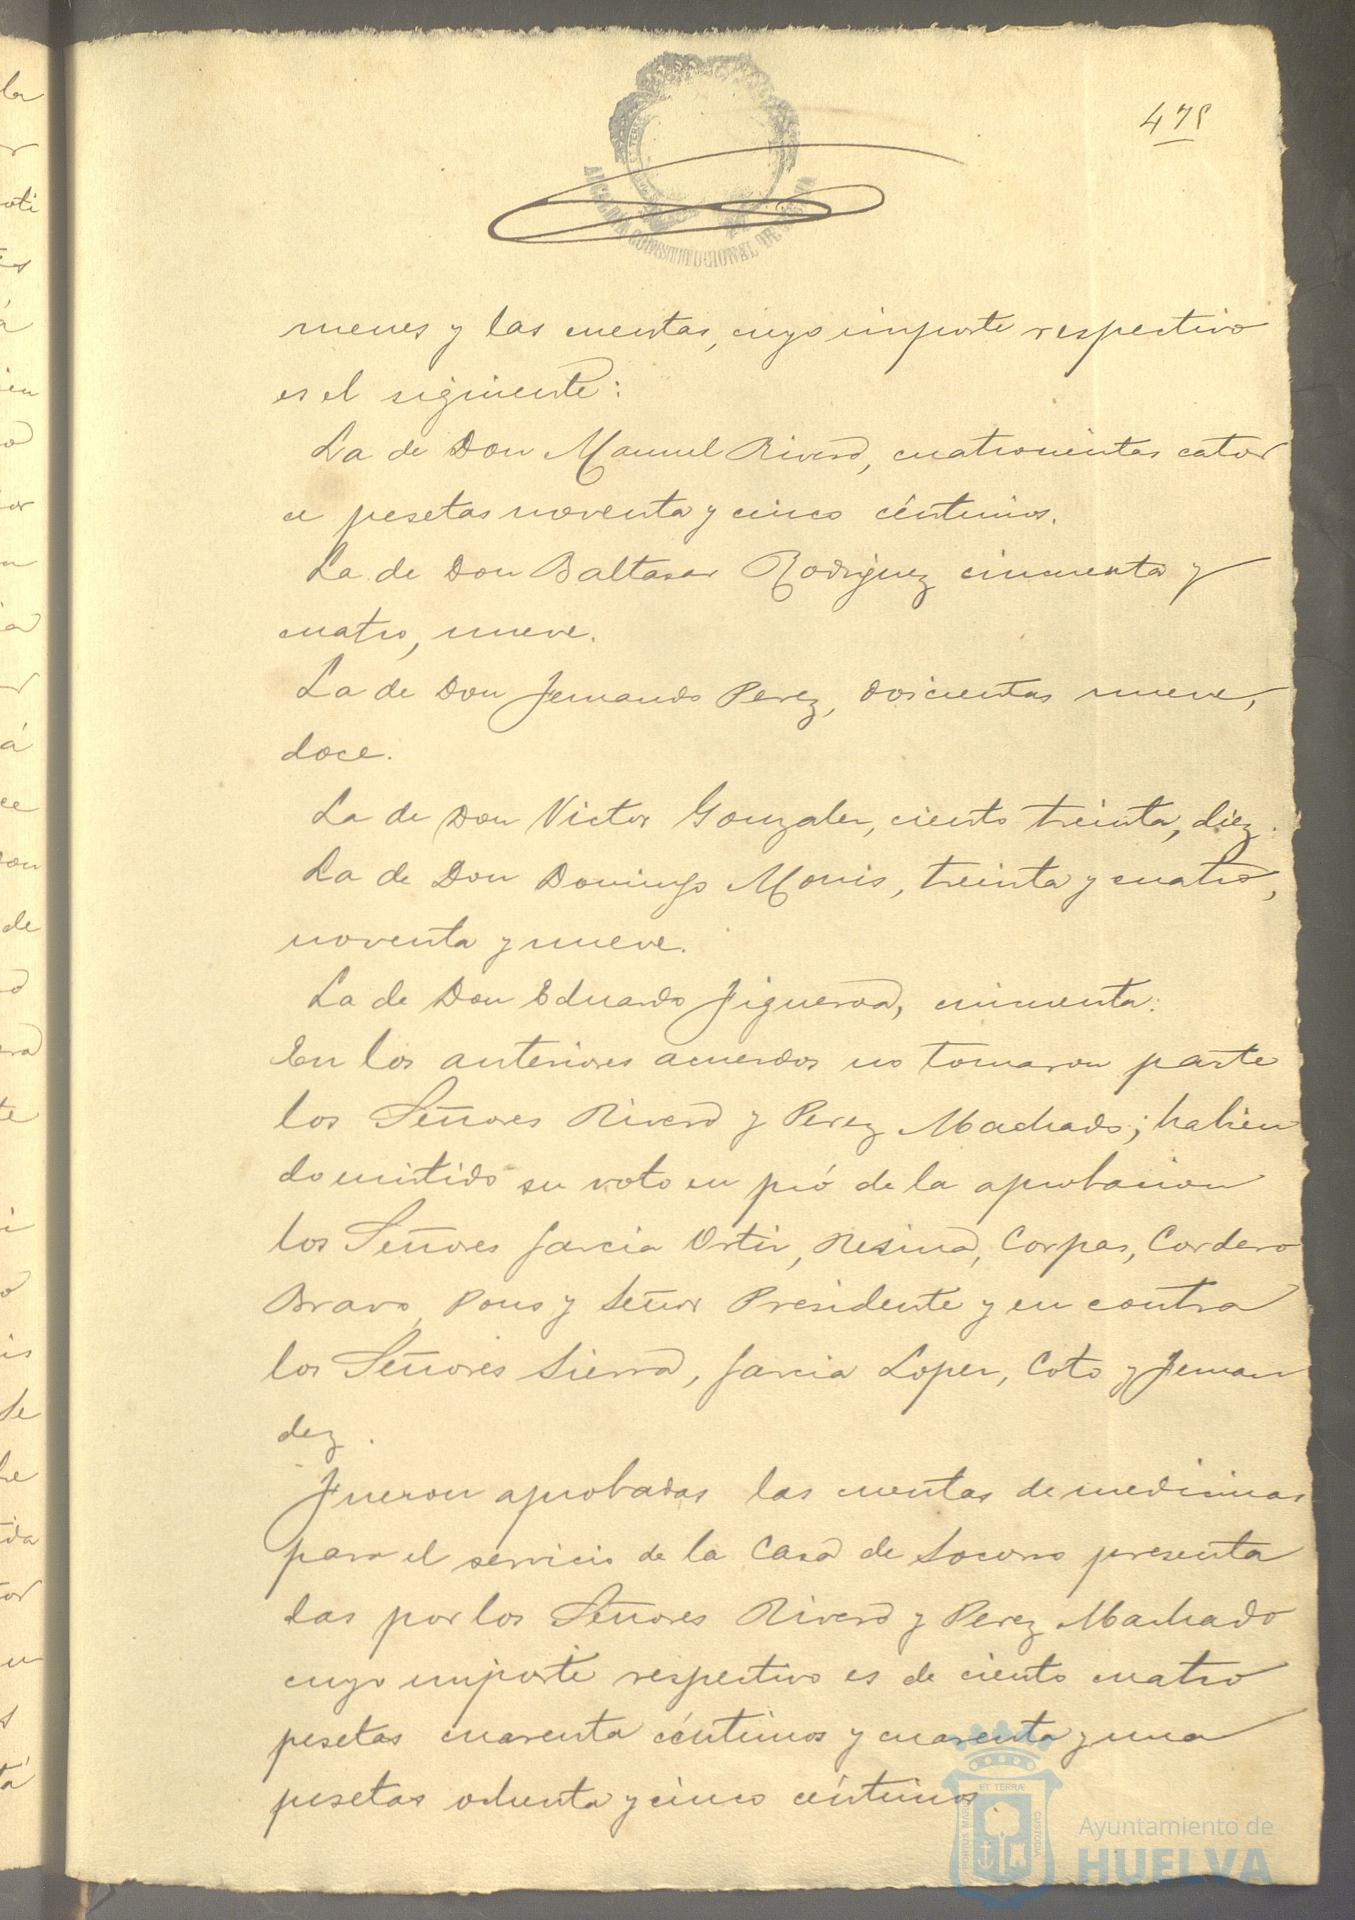 475
ALCALDIA CONSTITUCIONAL DE HUELVA
menes y las cuentas, cuyo importe respectivo
es el siguiente:
La de Don Manuel Rivero, cuatrocientas cator
ce pesetas noventa y cinco céntimos.
La de Don Baltasar Rodriguez cincuenta y
cuatro, nueve.
La de Don Fernando Perez, doscientas nueve,
doce.
La de Don Victor Gonzalez, ciento treinta, diez.
La de Don Domingo Monis, treinta y cuatro,
noventa y nueve.
La de Don Eduardo Figueroa, cincuenta.
En los anteriores acuerdos no tomaron parte
los Señores Rivero y Perez Machado; habien
do emitido su voto en pró de la aprobacion
los Señores Garcia Ortiz, Resina, Corpas, Cordero
Bravo, Pons y Señor Presidente y en contra
los Señores Sierra, Garcia Lopez, Coto y Fernan
dez.
Fueron aprobadas las cuentas de medicinas
para el servicio de la Casa de Socorro presenta
das por los Señores Rivero y Perez Machado
cuyo importe respectivo es de ciento cuatro
pesetas cuarenta céntimos y cuarenta y una
pesetas ochenta y cinco céntimos.
ET TERRÆ
CUSTODIA
Ayuntamiento de
HUELVA